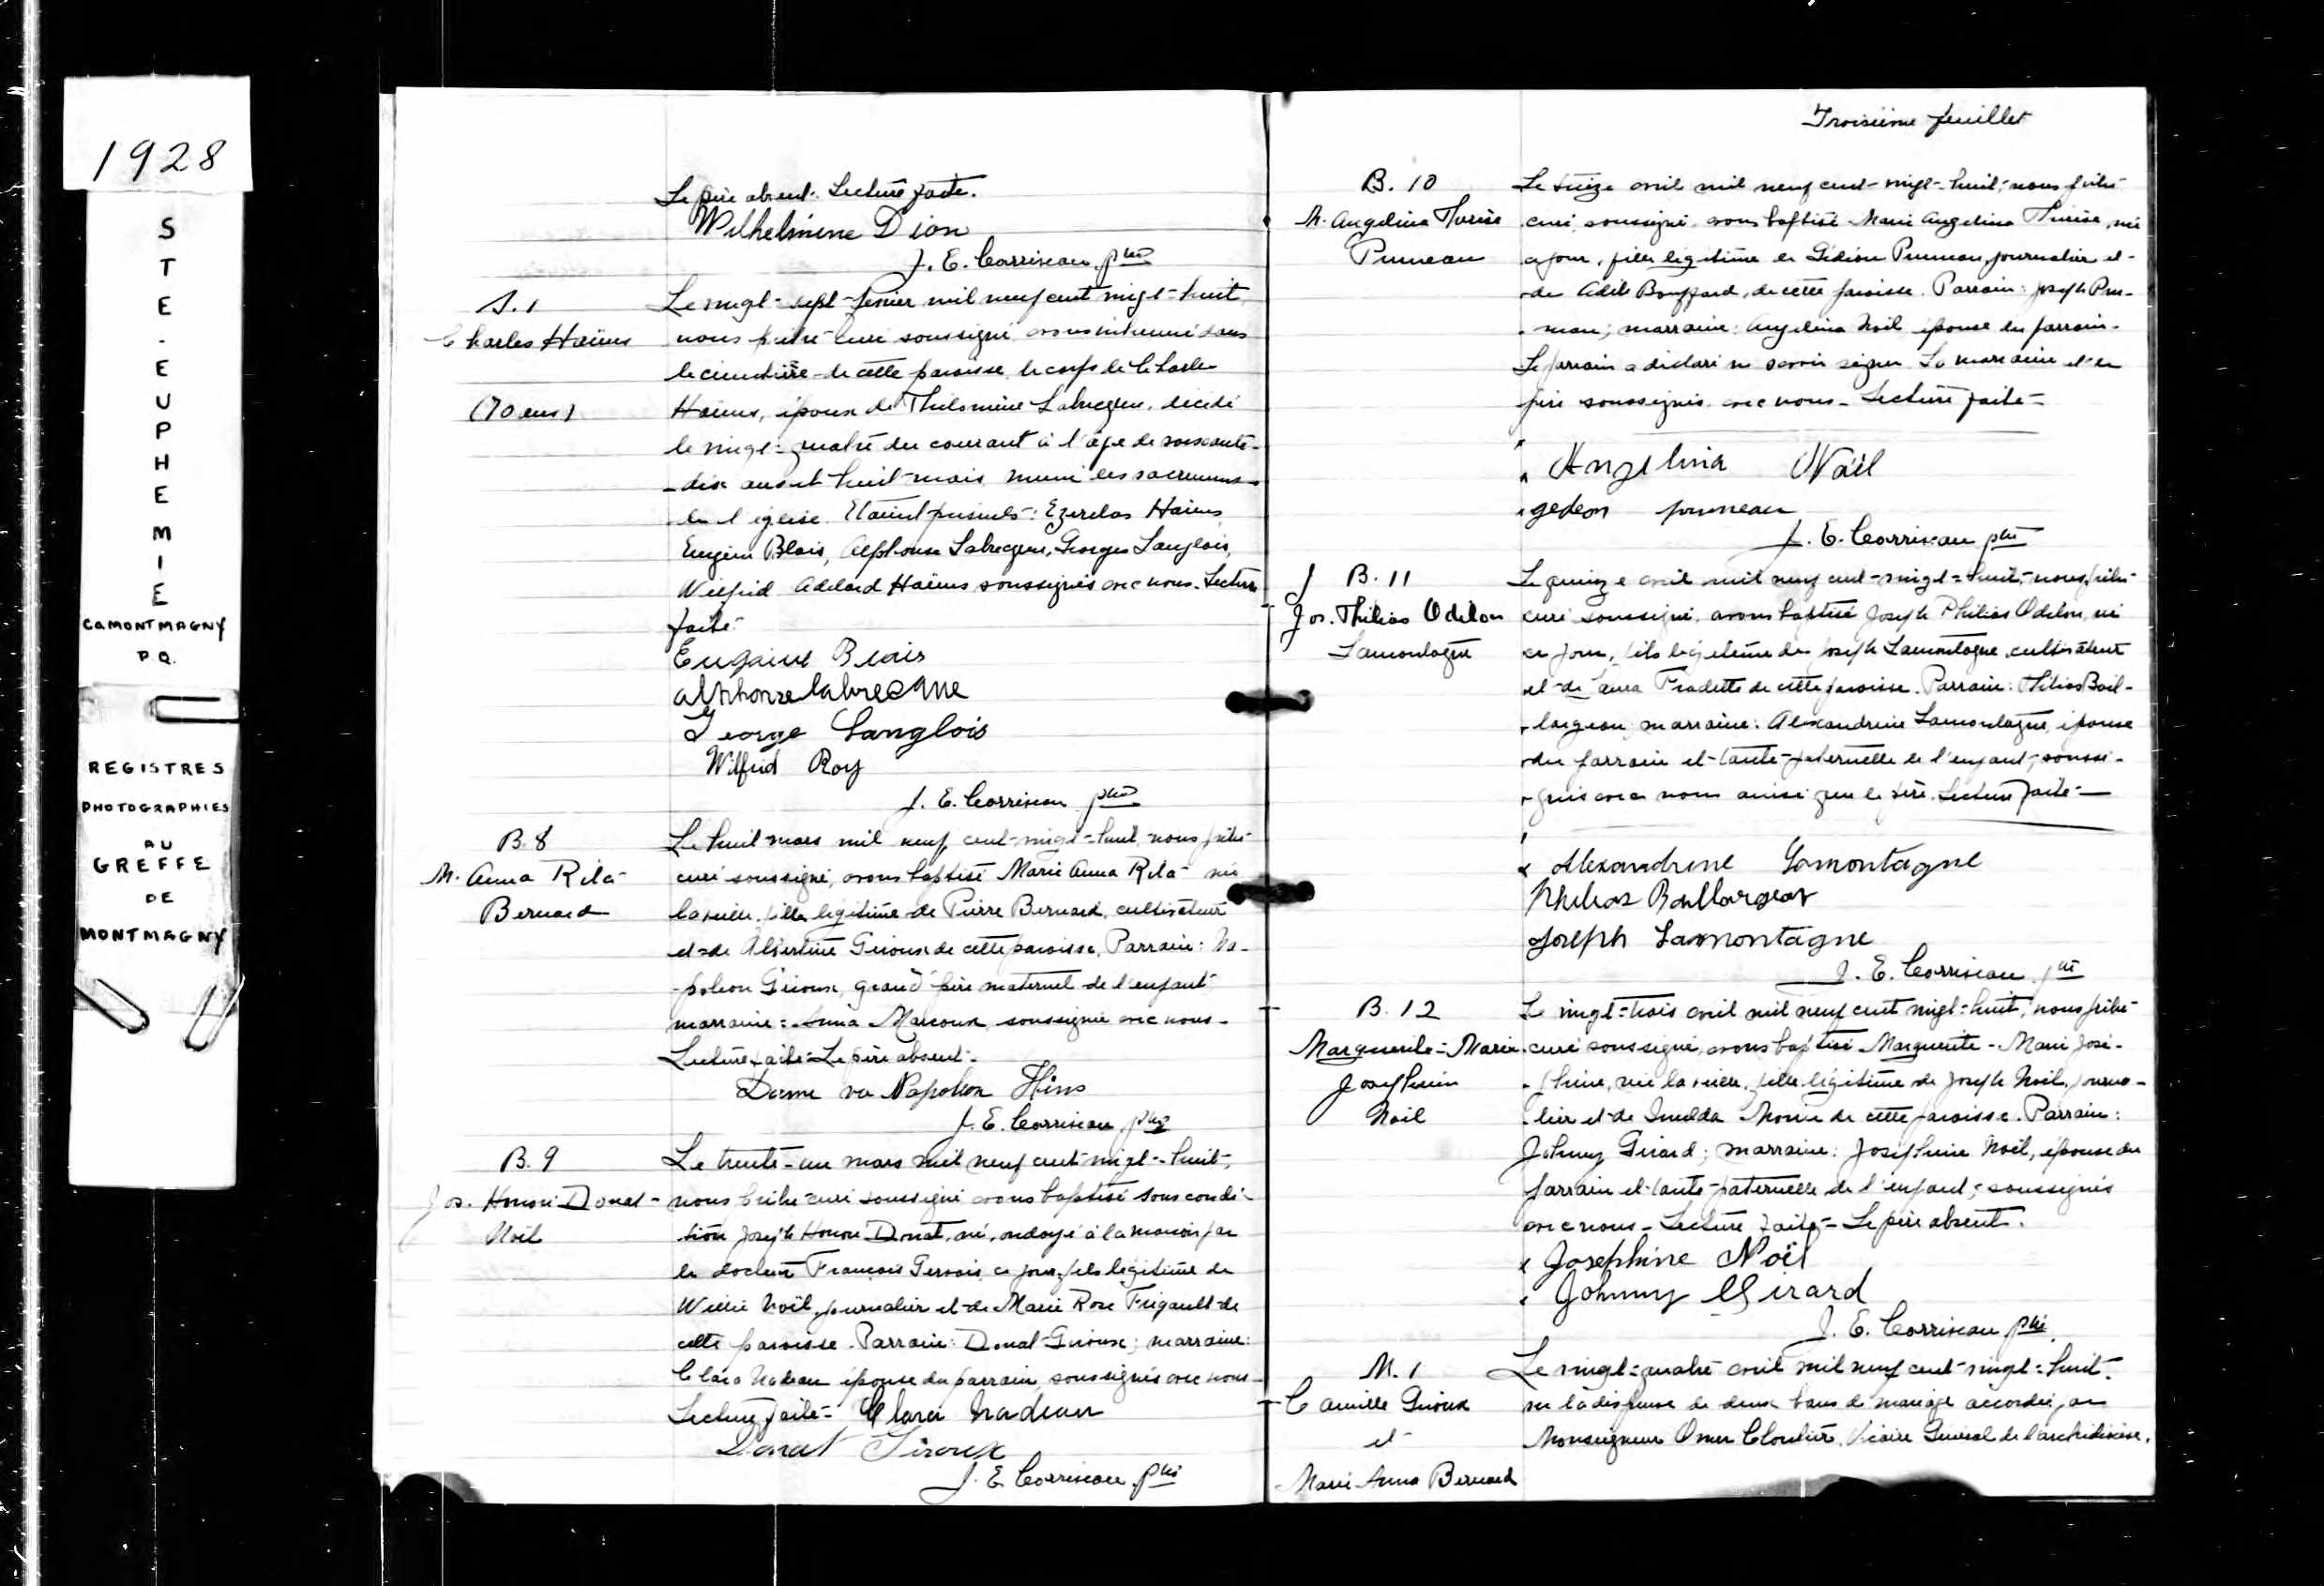 1928
S
T
E
.
E
U
P
H
E
M
I
E
CO MONTMAGNY
P Q.
REGISTRES
PHOTOGRAPHIES
AU
GREFFE
DE
MONTMAGNY
Le père absent. Lecture faite.
Wilhelmine Dion
J. E. Corriveau ptre
S. 1
Charles Haïns
(70 ans)
Le vingt-sept février mil neuf cent vingt-huit
nous prêtre curé soussigné avons inhumé dans
le cimetière de cette paroisse le corps de Charles
Haïns, époux de Philomène Labrecque, décédé
le vingt-quatre du courant à l'âge de soixante-
-dix ans et huit mois muni des sacrements
de l'église. Etaient présents: Ezerelas Haïns,
Eugène Blais, Alphonse Labrecque, Georges Langlois,
Wilfrid Adelard Haïns soussignés avec nous. Lecture
faite.
Eugène Blais
alphonse labrecque
George Langlois
Wilfrid Roy
J. E. Corriveau ptre
B. 8
M. Anna Rita
Bernard
Le huit mars mil neuf cent-vingt-huit, nous prêtre
curé soussigné, avons baptisé Marie Anna Rita née
la veille, fille légitime de Pierre Bernard, cultivateur
et de Albertine Giroux de cette paroisse. Parrain: Na-
-poléon Giroux, grand père maternel de l'enfant
marraine: Anna Marcoux soussignée avec nous-
Lecture faite. Le père absent.
Dame Napoléon Hins
J. E. Corriveau ptre
B. 9
Jos. Honoré Donat
Noël
Le trente-un mars mil neuf cent vingt-huit,
nous prêtre curé soussigné avons baptisé sous condi-
tion Joseph Honoré Donat, né, ondoyé à la maison par
le docteur François Gervais, ce jour, fils légitime de
Willie Noël, journalier et de Marie Rose Frigault de
cette paroisse. Parrain: Donat Giroux; marraine:
Clara Nadeau épouse du parrain, soussignés avec nous-
Lecture faite- Clara Nadeau
Donat Giroux
J. E. Corriveau ptre
Troisième feuillet
B. 10
M. Angelina Thérèse
Pruneau
Le treize avril mil neuf cent-vingt-huit, nous prêtre
curé, soussigné, avons baptisé Marie Angelina Thérèse, née
ce jour, fille légitime de Gédéon Pruneau, journalier et
de Adèle Bouffard, de cette paroisse. Parrain: Joseph Pru-
-neau; marraine: Angelina Noël épouse du parrain.
Le parrain a déclaré ne savoir signer. La marraine et le
père soussignés avec nous- Lecture faite-
Angelina Noël
gedeon pruneau
J. E. Corriveau ptre
B. 11
Jos. Philias Odilon
Lamontagne
Le quinze avril mil neuf cent-vingt-huit, nous prêtre
curé soussigné, avons baptisé Joseph Philias Odilon, né
ce jour, fils légitime de Joseph Lamontagne, cultivateur
et de Laura Fradette de cette paroisse. Parrain: Philias Bail-
-largeon; marraine: Alexandrine Lamontagne, épouse
du parrain et tante paternelle de l'enfant, soussi-
-gnés avec nous ainsi que le père. Lecture faite-
Alexandrine Lamontagne
Philias Baillargeon
Joseph Lamontagne
J. E. Corriveau ptre
B. 12
Marguerite-Marie
Joséphine
Noël
Le vingt-trois avril mil neuf cent vingt-huit, nous prêtre
curé soussigné, avons baptisé Marguerite-Marie José-
-phine, née la veille, fille légitime de Joseph Noël, journa-
lier et de Imelda Morin de cette paroisse. Parrain:
Johnny Girard; marraine: Joséphine Noël, épouse du
parrain et tante paternelle de l'enfant, soussignés
avec nous- Lecture faite- Le père absent.
Josephine Noël
Johnny Girard
J. E. Corriveau ptre
M. 1
Camille Giroux
et
Marie Anna Bernard
Le vingt-quatre avril mil neuf cent-vingt-huit.
vu la dispense de deux bans de mariage accordée par
Monseigneur Omer Cloutier, Vicaire Général de l'archidiocèse,